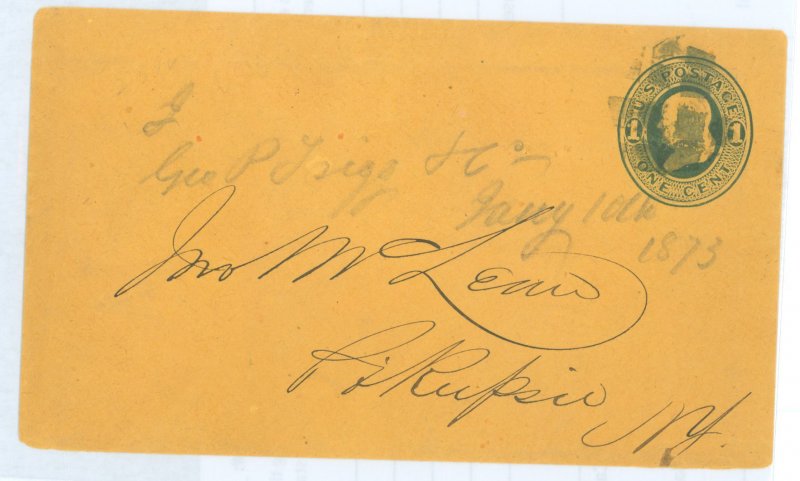 U.S. POSTAGE
1 1
ONE CENT
Geo P Trigg & Co
Jany 10th
1873
Jno McLean
Po'Kupsie
NY.